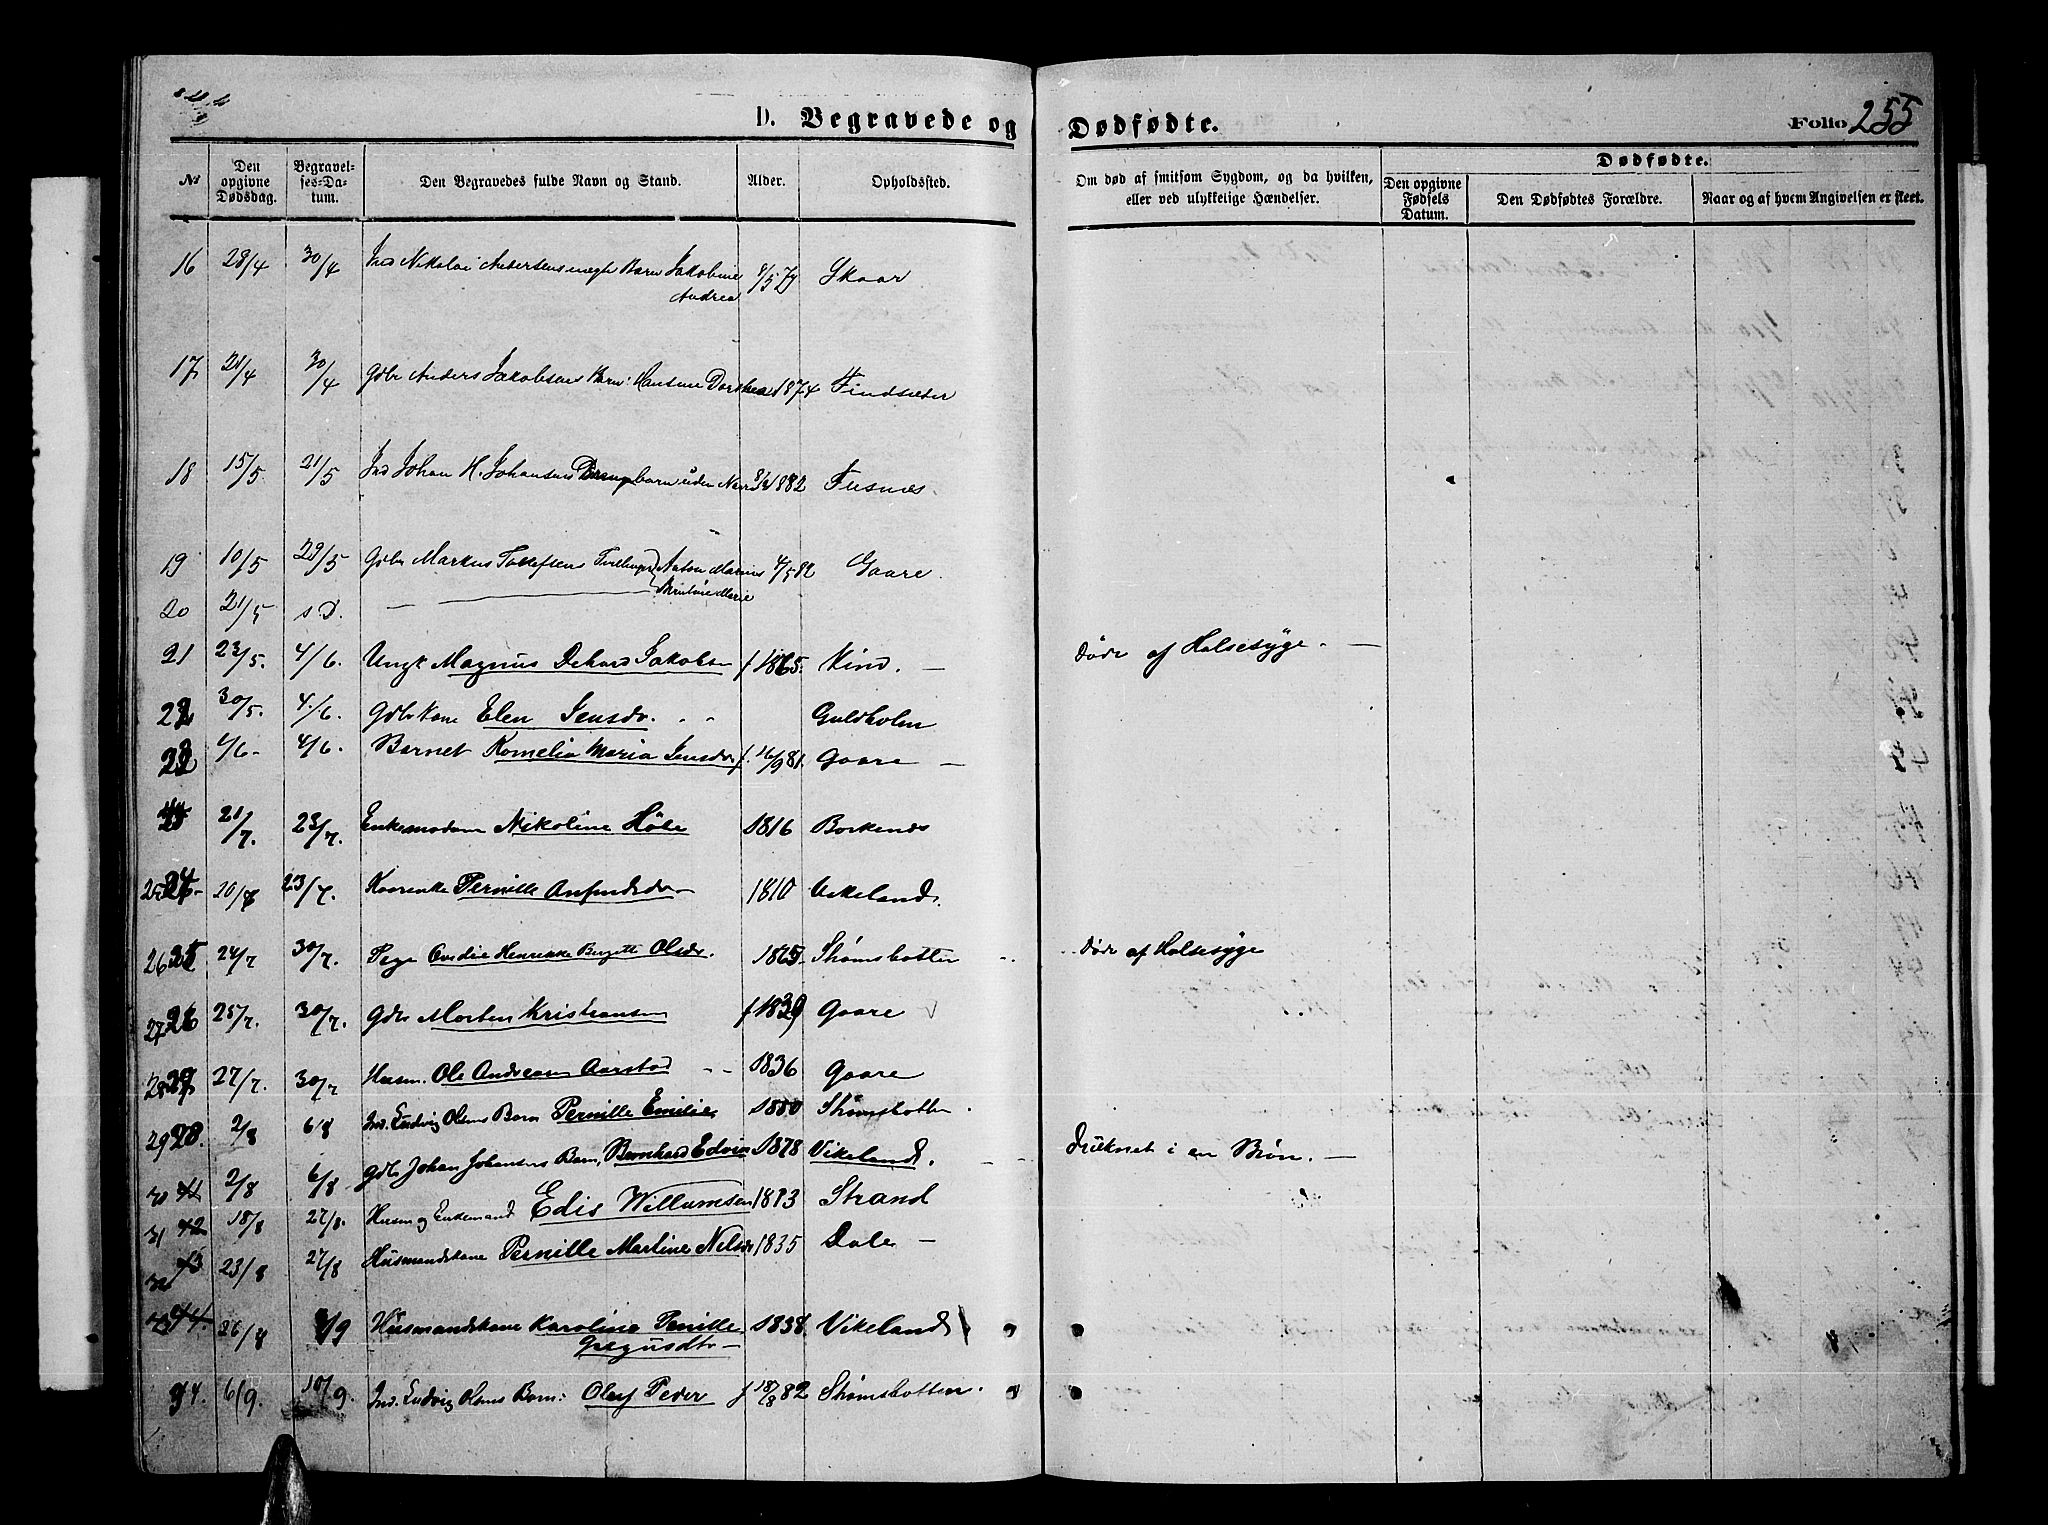 D. Begravede og Dødfødte. Folio 255
№ Den opgivne Dødsdag. Begravel-ses-Da-tum. Den Begravedes fulde Navn og Stand. Alder. Opholdssted. Om død af smitsom Sygdom, og da hvilken, eller ved ulykkelige Hændelser. Dødfødte.
Den opgivne Fødsels Datum. Den Dødfødtes Forældre. Naar og af hvem Angivelsen er skeet.
16 28/4 30/4 Ind Nikolai Andersens Barn Jakobine Andrea 8/5 79 Skaar
17 21/4 30/4 Gdbr Anders Jakobsens Barn: Hansine Dorthea 1874 Findsæter
18 15/5 21/5 Ind Johan H. Johansens Drengebarn uden Navn 1882 Fusnæs
19 10/5 29/5 Gdbr Markus Tollefsens Tvillinger Anton Marius 4/5 82 Gaare
20 21/5 s.D. — Marie
21 23/5. 4/6. Ungk Magnus Jakobsen f 1865. Kind. — Døde af Halsesyge. —
22 30/5. 4/6. Gdbr Kone Elen Jensdr. Guldholm
23 4/6 - 4/6. Barnet Kornelia Maria Jensdr f. 16/9 81. Gaare —
21/7. 23/7. Enkemadam Nikoline Høbe 1816 Borkenes
25 20/7 23/7. Kaarenke Pernille Anfindsdr 1810 Vikeland.
26 24/7 30/7. Pige Henrikke Bergitte Olsdr. 1865 Strømsbotten Døde af Halsesyge
27 25/7. 30/7. Gdbr Morten Kristiansen f 1839 Gaare
28 27/7. 30/7 Husm. Ole Andreasen Aarstad 1836 Gaare
29 2/8 6/8 Ind. Ludvig Olsens Barn Pernille Emilie 1880 Strømsbotten.
30 2/8 6/8 Gdbr Johan Johansens Barn, Bernhard Edvin 1878 Vikeland. Druknet i en Brøn. —
31 18/8 27/8. Husm og Enkemand Edis Willumsen 1813 Strand
32 23/8 27/8 Husmandskone Pernille Martine Nelsdr 1835 Dale —
33 26/8 /9 Husmandskone Karoline Pernille Gregusdtr — 1838 Vikeland
34. 6/9. 10/9. Ind. Ludvig Olsens Barn: Olaf Peder f 18/8 82 Strømsbotten.